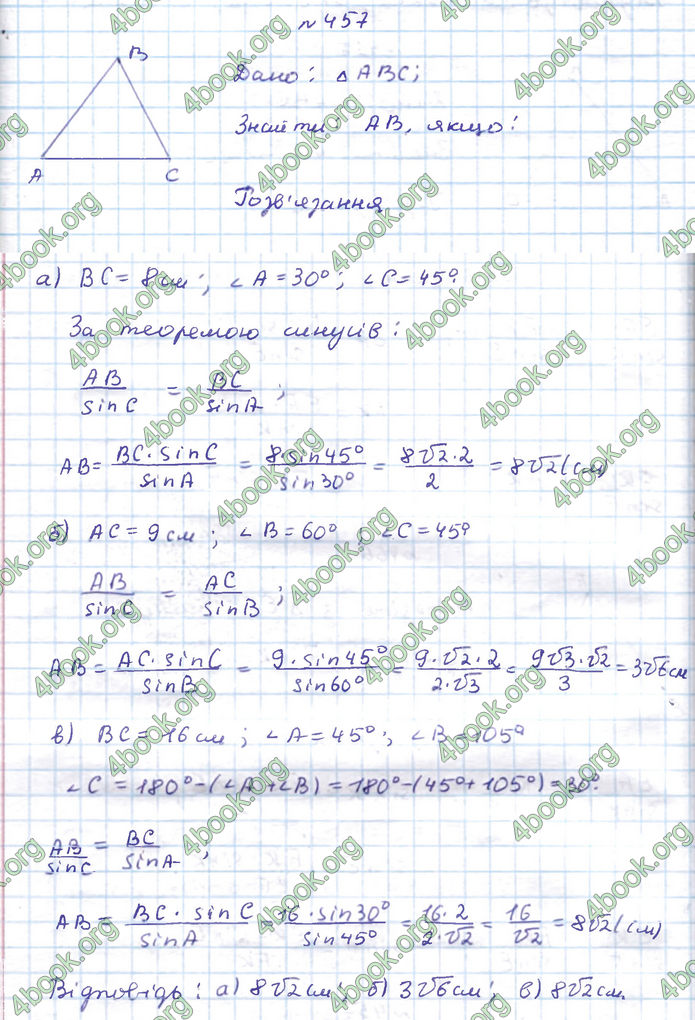 № 457
B
Дано: △ ABC;
Знайти: AB, якщо:
A C
Розв'язання
а) BC = 8 см; ∠A = 30°; ∠C = 45°.
За теоремою синусів:
AB/sin C = BC/sin A;
AB = BC·sin C/sin A = 8·sin 45°/sin 30° = 8√2·2/2 = 8√2 (см)
б) AC = 9 см; ∠B = 60°; ∠C = 45°
AB/sin C = AC/sin B;
AB = AC·sin C/sin B = 9·sin 45°/sin 60° = 9·√2·2/2·√3 = 9√3·√2/3 = 3√6 см
в) BC = 16 см; ∠A = 45°; ∠B = 105°
∠C = 180° - (∠A + ∠B) = 180° - (45° + 105°) = 30°.
AB/sin C = BC/sin A;
AB = BC·sin C/sin A = 16·sin 30°/sin 45° = 16·2/2·√2 = 16/√2 = 8√2 (см)
Відповідь: а) 8√2 см; б) 3√6 см; в) 8√2 см.
4book.org